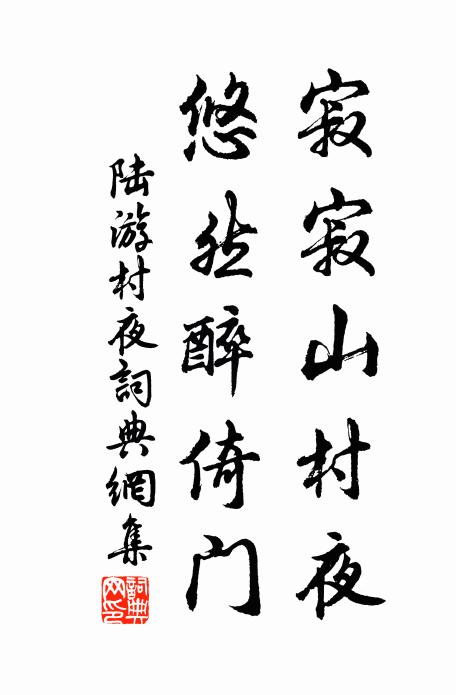 寂寂山村夜
悠然醉倚门
陆游村夜詞典網集
詞典网印